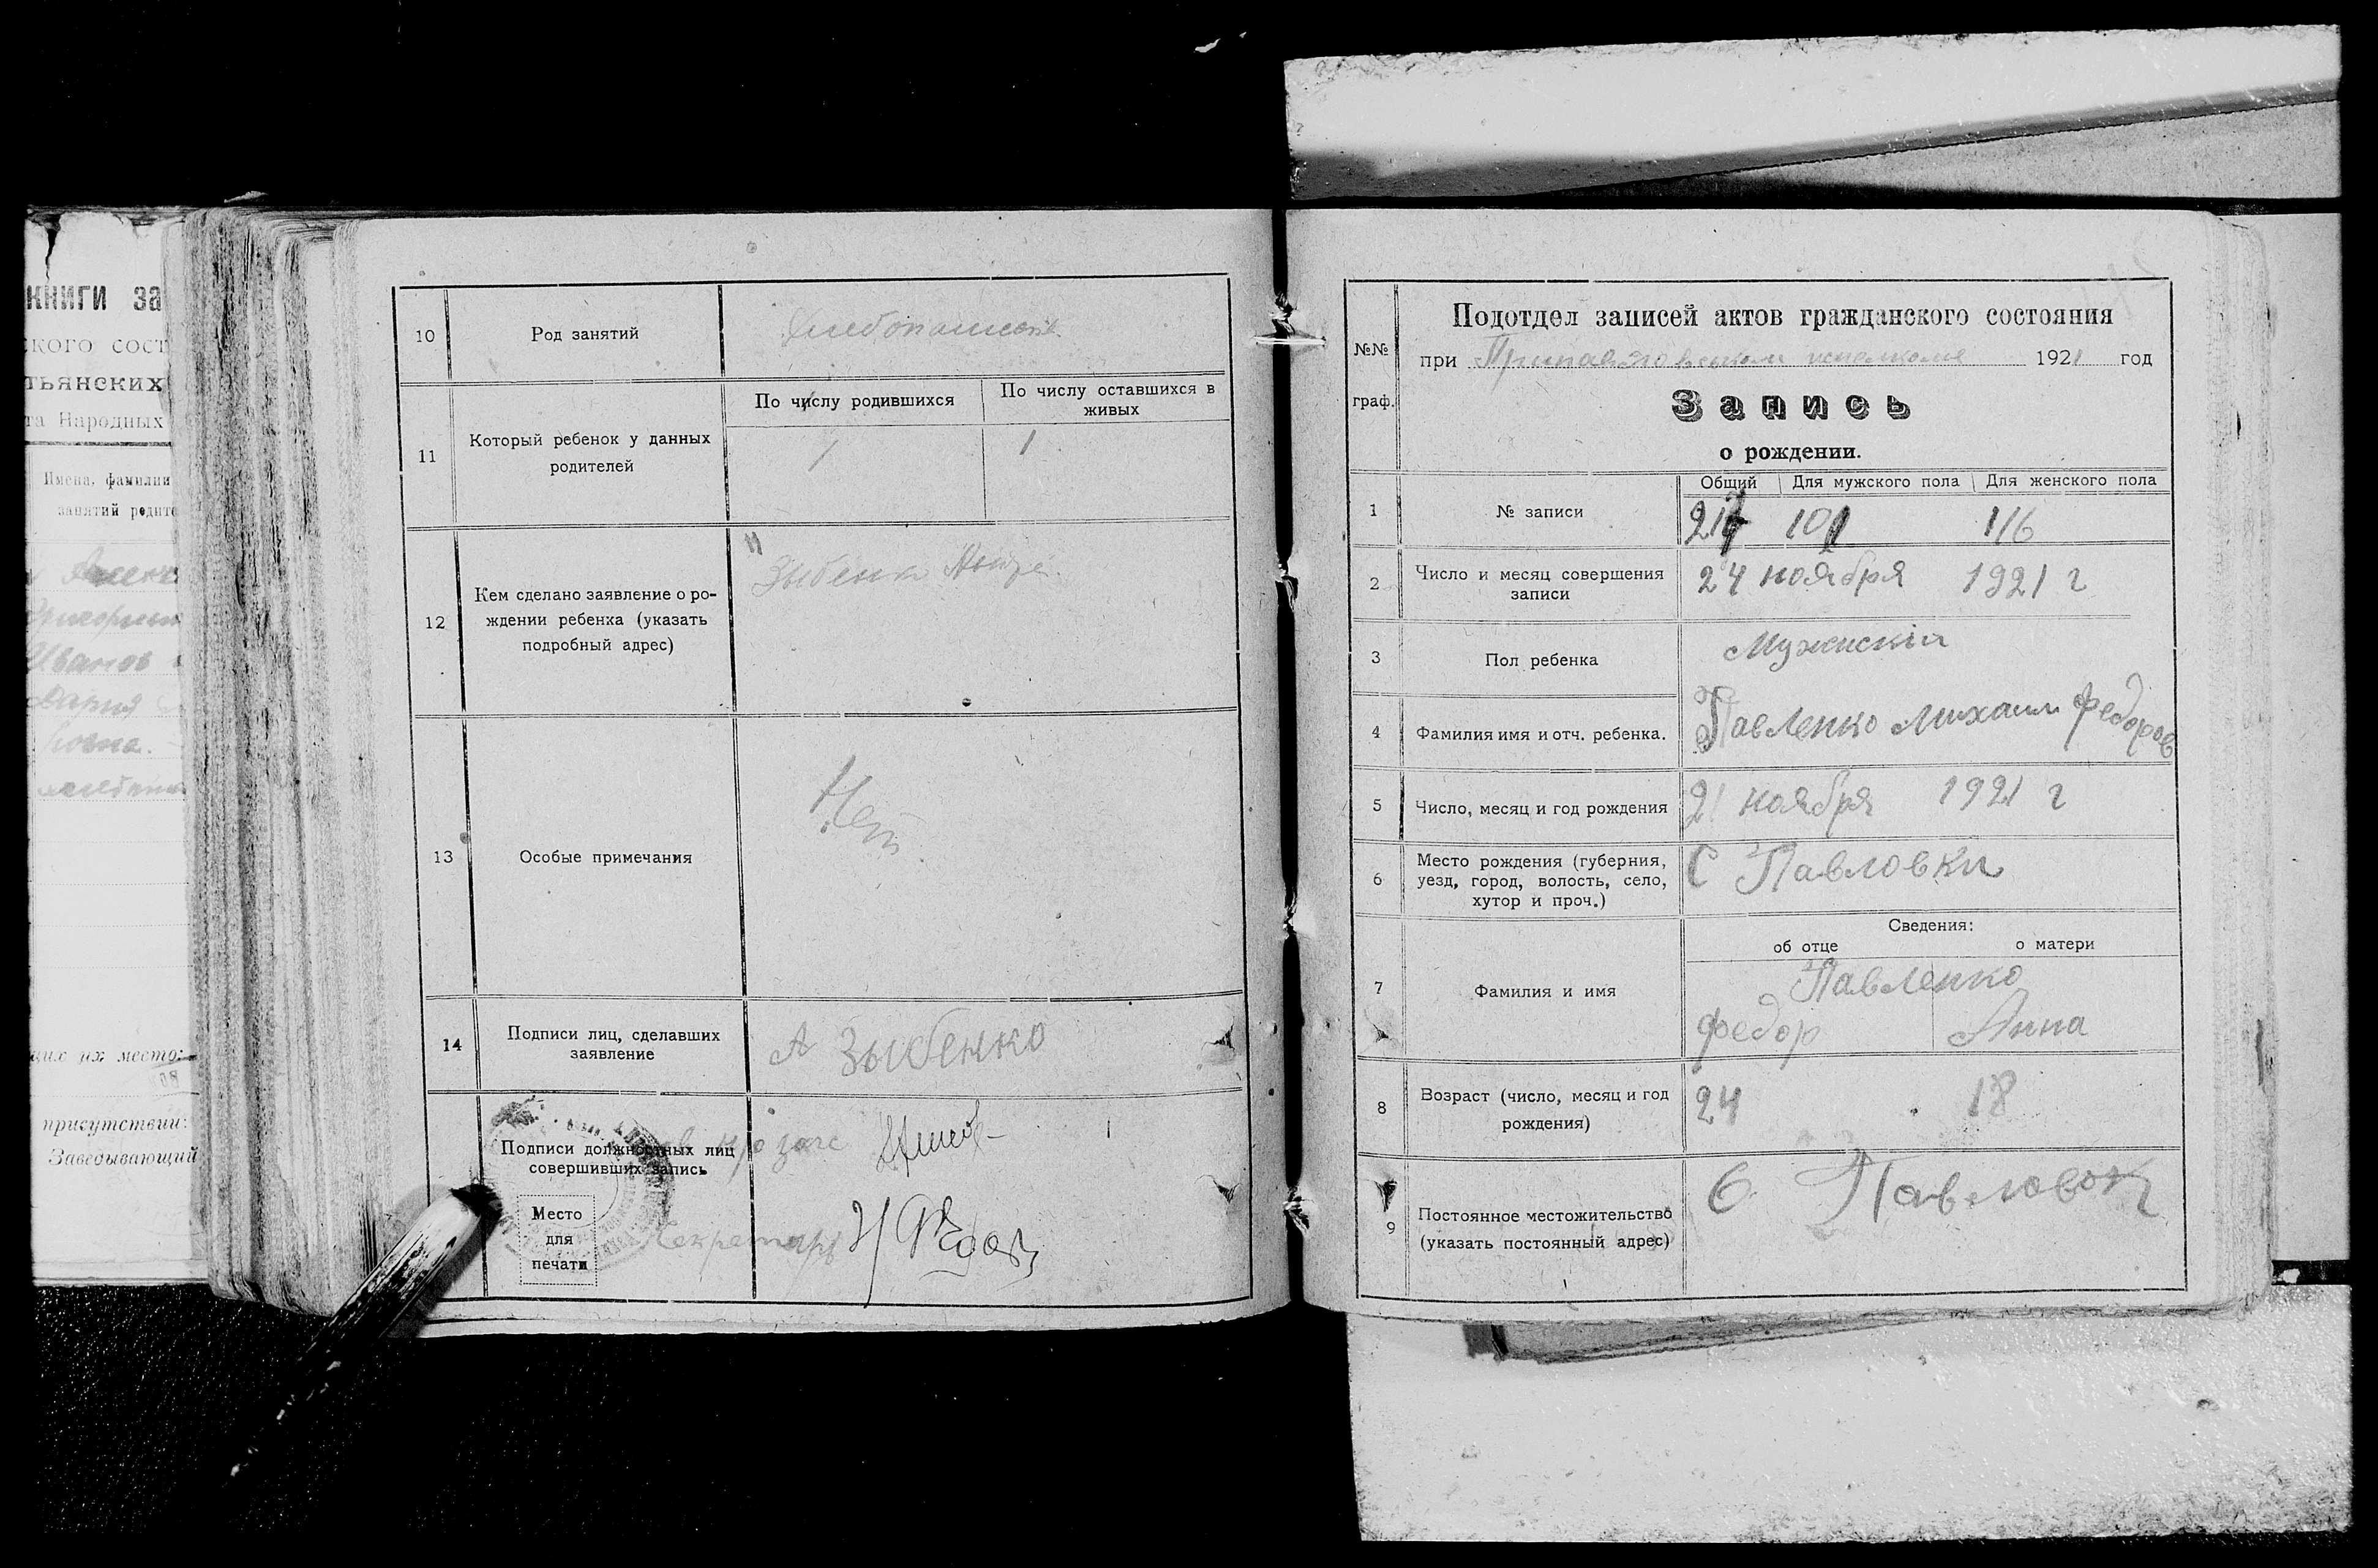 книги за
ского сост
тьянских
та Народных
Имена, фамилии
занятий родите
Иванов
Дария
щие их место:
присутствии:
Заведывающий
10
Род занятий
11
Который ребенок у данных
родителей
По числу родившихся
По числу оставшихся в
живых
1
1
12
Кем сделано заявление о ро-
ждении ребенка (указать
подробный адрес)
Зыбенко
13
Особые примечания
Нет
14
Подписи лиц, сделавших
заявление
А Зыбенко
Подписи должностных лиц
совершивших запись
Место
для
печати
Секретарь
№№
граф.
Подотдел записей актов гражданского состояния
при исполкоме 1921 год
Запись
о рождении.
1
№ записи
Общий
Для мужского пола
Для женского пола
217
101
116
2
Число и месяц совершения
записи
24 ноября 1921 г
3
Пол ребенка
Мужский
4
Фамилия имя и отч. ребенка.
Павленко Михаил Федоров
5
Число, месяц и год рождения
21 ноября 1921 г
6
Место рождения (губерния,
уезд, город, волость, село,
хутор и проч.)
С Павловки
7
Фамилия и имя
Сведения:
об отце
о матери
Павленко
Федор
Анна
8
Возраст (число, месяц и год
рождения)
24
18
9
Постоянное местожительство
(указать постоянный адрес)
С. Павловки